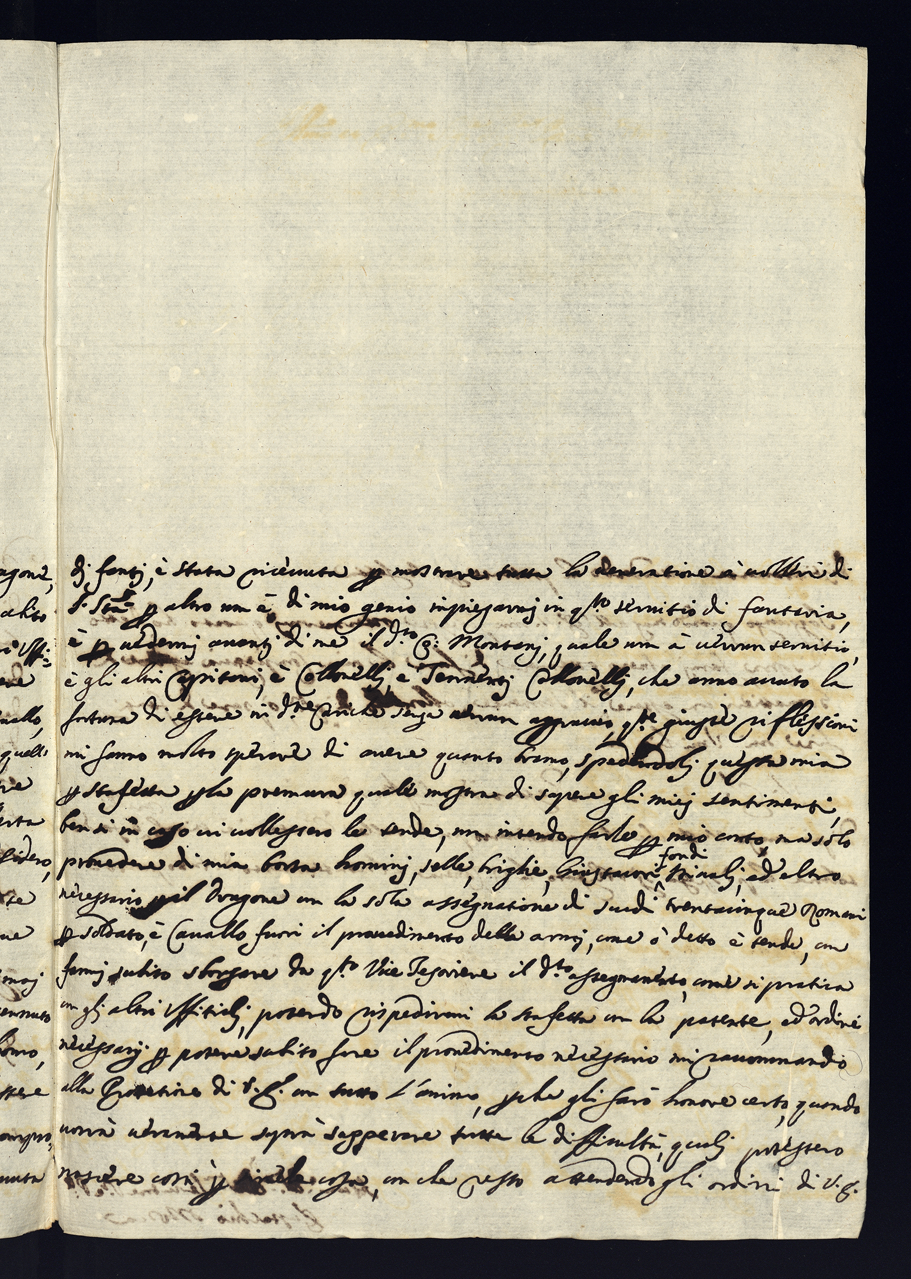 di fanti, è stata ricevuta p mostrare tutta la veneratione à volleri di
S. Stà p altro non è di mio genio inpiegarmi in q.sto servitio di fantaria,
è p vedermi avanti di me il d.to Montanj, quale non à verun servitio,
è gli altri Capitani, è Collonellj, e Tennentj Collonellj, che anno avuto la
fortuna di essere in d.tte Cariche senza verun aggravio, q.ste giuste riflessioni
mi fanno molto sperare di avere quanto bramo, spedendolj questa mia
p staffetta p la premura quale mostra di sapere gli miej sentimenti,
bensi in caso vi vollessero le tende, non intendo farle p mio conto, ma solo
provedere di mia borsa hominj, selle, briglie, fondi ed altro
necessario p il Dragone con la sola assegnatione di scudi trentacinque Romani
p soldato, è Cavallo fuori il provedimento delle armj, come ò detto è tende, con
farmj subito sborsare da q.sto Vice Tesoriere il d.to assegnamento, come si pratica
con gli altri Uffitialj, potendo rispedirmi la staffetta con la patente, ed'ordini
necessarij p potere subito fare il provedimento necessario mi raccommando
alla Protettione di V.E. con tutto l'animo, p che gli farò honore certo, quando
vorrà veramente saprà sapperare tutte le difficultà, qualj potessero
nascere così p simile cosa, con che resto attendendo gli ordini di V.E.